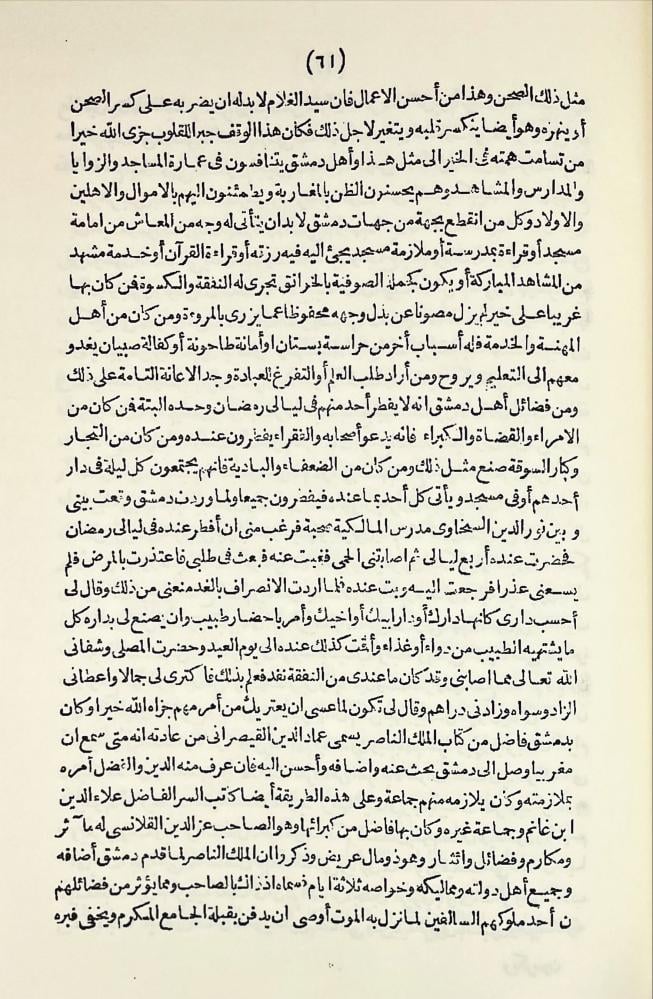 (٦١)
مثل ذلك الصحن وهذا من أحسن الاعمال فان سيد الغلام لا بد له ان يضربه على كسر الصحن
أو ينهره وهو أيضا ينكسر قلبه ويتغير لاجل ذلك فكان هذا الوقف جبرا للقلوب جزى الله خيرا
من تسامت همته فى الخير الى مثل هذا وأهل دمشق يتنافسون فى عمارة المساجد والزوايا
والمدارس والمشاهد وهم يحسنون الظن بالمغاربة ويطمئنون اليهم بالاموال والاهلين
والاولاد وكل من انقطع بجهة من جهات دمشق لا بد ان يتأتى له وجه من المعاش من امامة
مسجد أو قراءة بمدرسة أو ملازمة مسجد يجئ اليه فيه رزقه أو قراءة القرآن أو خدمة مشهد
من المشاهد المباركة أو يكون كجملة الصوفية بالخوانق تجرى له النفقة والكسوة فمن كان بها
غريبا على خير لم يزل مصونا عن بذل وجهه محفوظا عما يزرى بالمروءة ومن كان من أهل
المهنة والخدمة فله أسباب أخر من حراسة بستان او أمانة طاحونة أو كفالة صبيان يغدو
معهم الى التعليم ويروح ومن أراد طلب العلم أو التفرغ للعبادة وجد الاعانة التامة على ذلك
ومن فضائل أهل دمشق انه لا يفطر أحد منهم فى ليالى رمضان وحده البتة فمن كان من
الامراء والقضاة والكبراء فانه يدعو أصحابه والفقراء يفطرون عنده ومن كان من التجار
وكبار السوقة صنع مثل ذلك ومن كان من الضعفاء والبادية فانهم يجتمعون كل ليلة فى دار
أحدهم أو فى مسجد ويأتى كل أحد بما عنده فيفطرون جميعا ولما وردت دمشق وقعت بينى
وبين نور الدين السخاوى مدرس المالكية صحبة فرغب منى ان أفطر عنده فى ليالى رمضان
فحضرت عنده أربع ليالى ثم اصابتنى الحمى فغبت عنه فبعث فى طلبى فاعتذرت بالمرض فلم
يسعنى عذرا فرجعت اليه وبت عنده فلما اردت الانصراف بالغد منعنى من ذلك وقال لى
أحسب دارى كانها دارك أو دار ابيك أو اخيك وأمر باحضار طبيب وان يصنع لى بداره كل
ما يشتهيه الطبيب من دواء أو غذاء وأقمت كذلك عنده الى يوم العيد وحضرت المصلى وشفانى
الله تعالى مما اصابنى وقد كان ما عندى من النفقة نفد فعلم بذلك فاكترى لى جمالا واعطانى
الزاد وسواه وزادنى دراهم وقال لى تكون لما عسى ان يعتريك من أمر مهم جزاه الله خيرا وكان
بدمشق فاضل من كتاب الملك الناصر يسمى عماد الدين القيصرانى من عادته انه متى سمع ان
مغربيا وصل الى دمشق بحث عنه واضافه وأحسن اليه فان عرف منه الدين والفضل أمره
بملازمته وكان يلازمه منهم جماعة وعلى هذه الطريقة أيضا كاتب السر الفاضل علاء الدين
ابن غانم وجماعة غيره وكان بها فاضل من كبرائها وهو الصاحب عز الدين القلانسى له مآثر
ومكارم وفضائل وايثار وهو ذو مال عريض وذكروا ان الملك الناصر لما قدم دمشق أضافه
وجميع أهل دولته ومماليكه وخواصه ثلاثة ايام فسماه اذ ذاك بالصاحب ومما يؤثر من فضائلهم
ن أحد ملوكهم السالفين لما نزل به الموت أوصى ان يدفن بقبلة الجامع المكرم ويخفى قبره